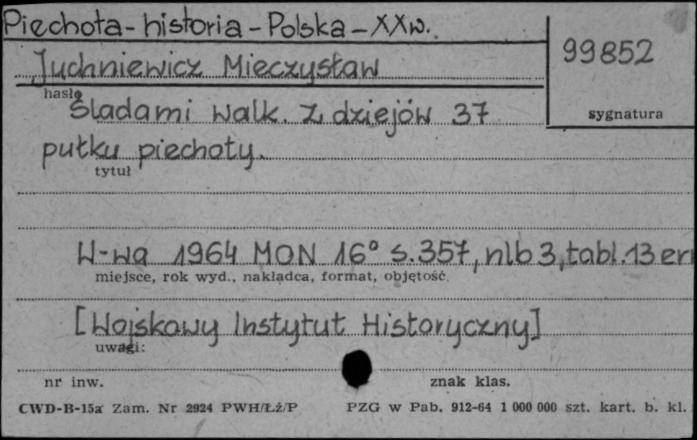 Piechota - historia - Polska - XXw.
99852
Juchniewicz Mieczysław
hasło
sygnatura
Śladami walk. Z dziejów 37
pułku piechoty.
tytuł
W-wa 1964 MON 16° s.357, nlb 3, tabl.13 err
miejsce, rok wyd., nakładca, format, objętość.
[Wojskowy Instytut Historyczny]
uwagi:
nr inw.
znak klas.
CWD-B-15a Zam. Nr 2924 PWH/Łż/P
PZG w Pab. 912-64 1 000 000 szt. kart. b. kl.